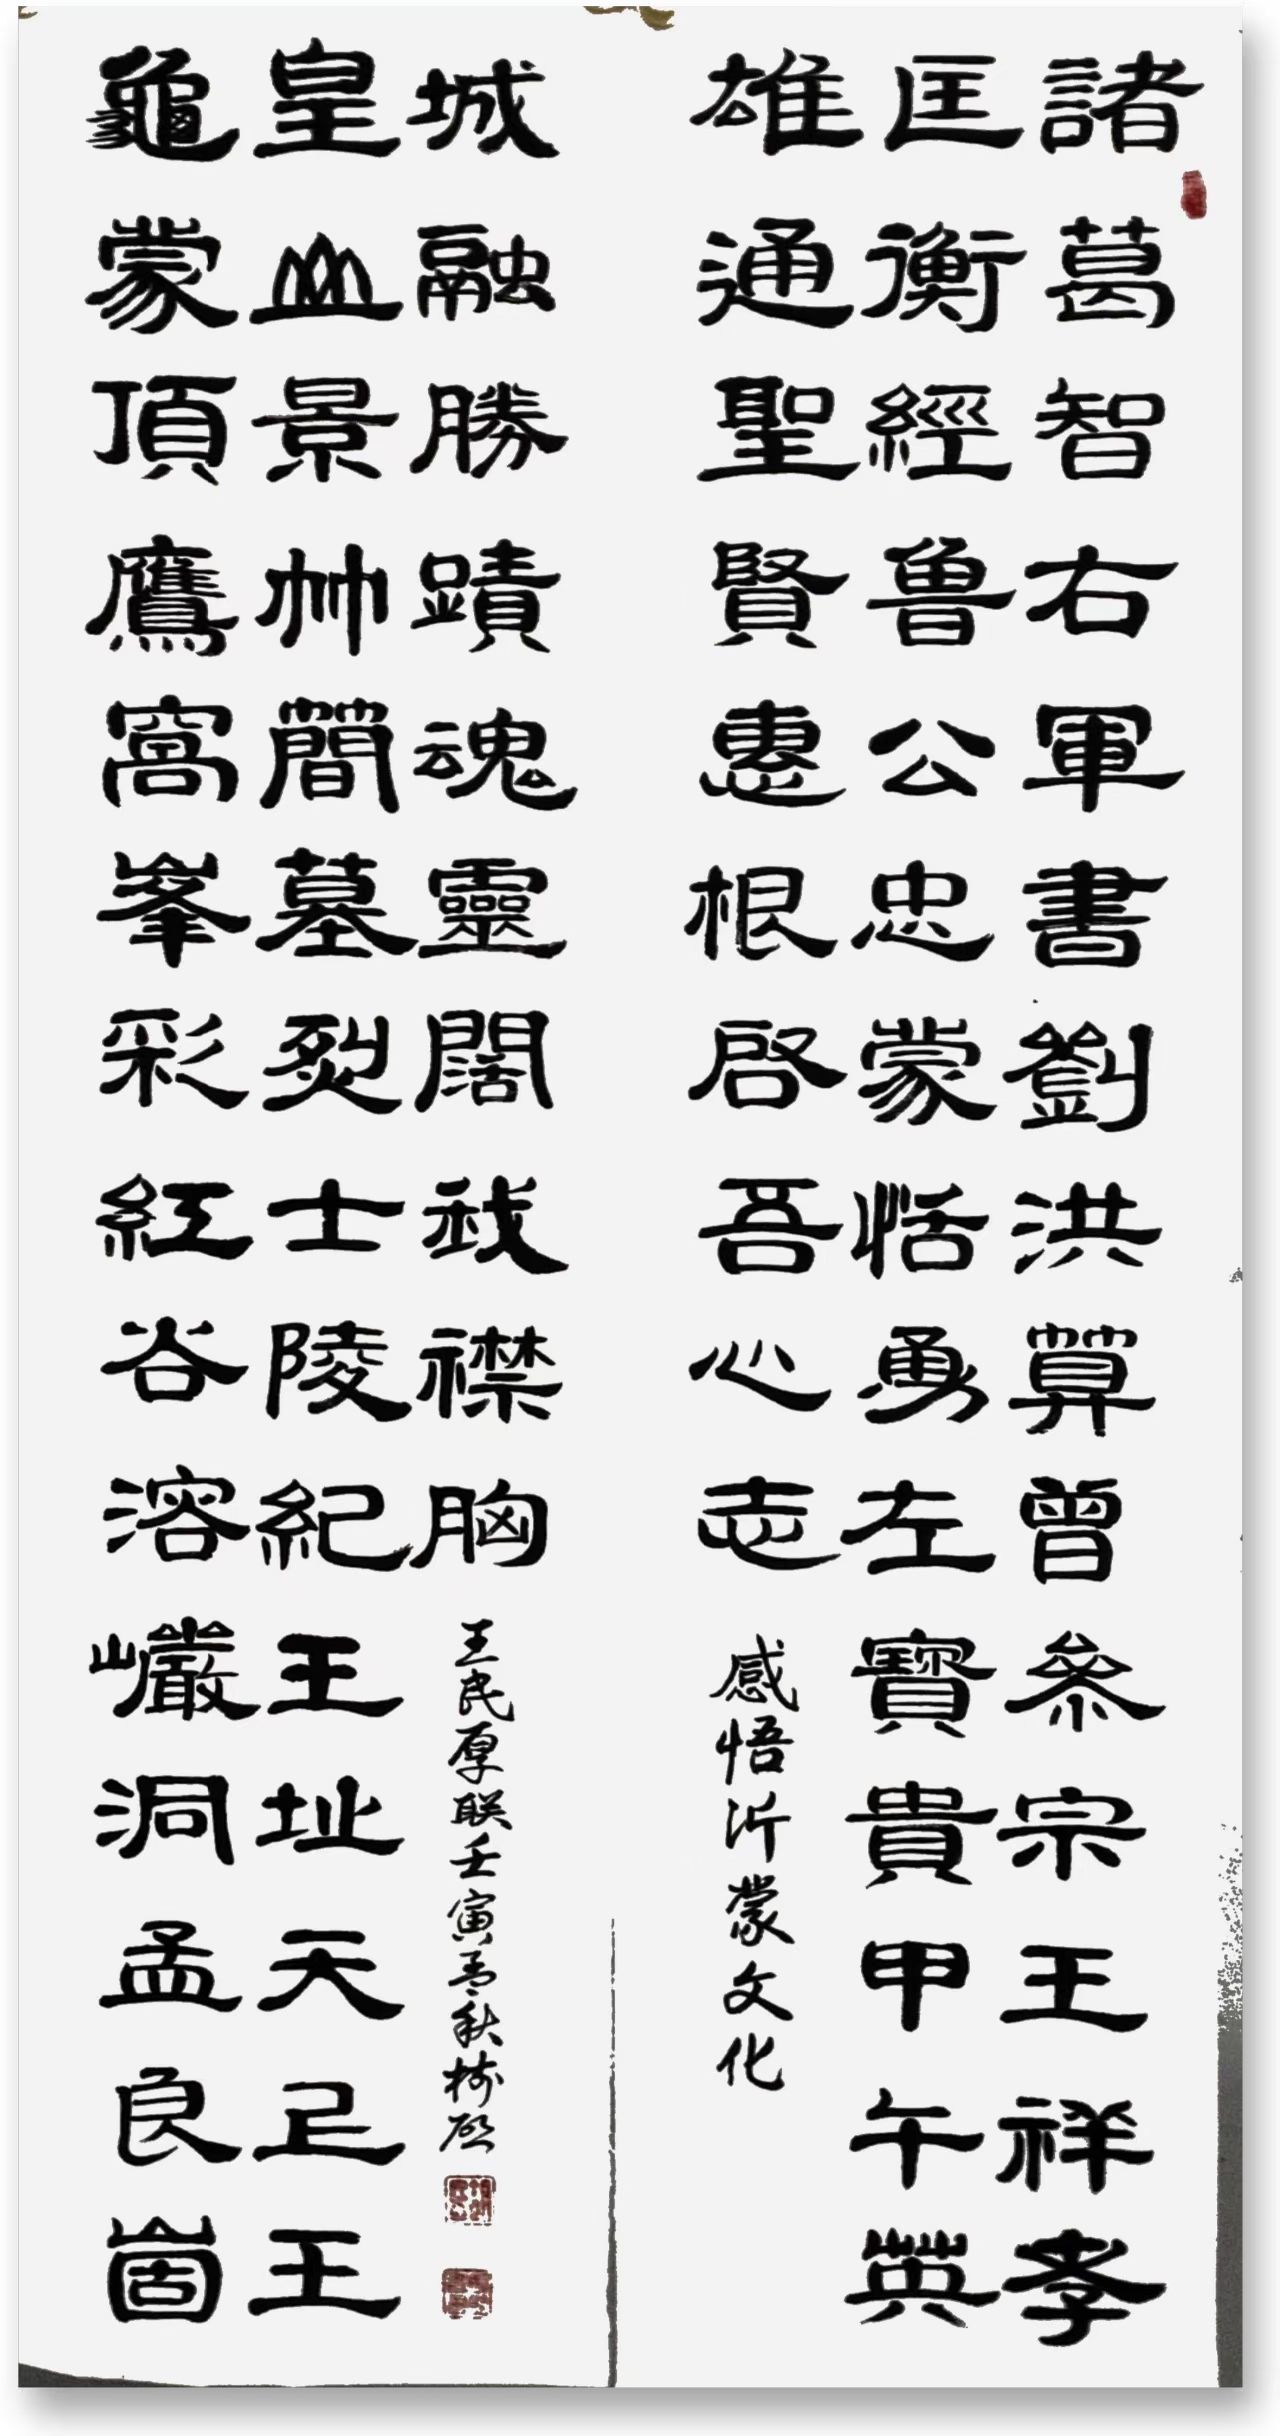 諸葛智右軍書劉洪算曾參宗王祥孝
匡衡經魯公忠蒙恬勇左寶貴甲午英
雄通聖賢惠根启吾心志
感悟沂蒙文化
龜蒙頂鷹窩峯彩紅谷溶巗洞孟良崮
皇山景竹簡墓烈士陵紀王址天上王
城融勝蹟魂靈闊我襟胸
王民厚联壬寅孟秋